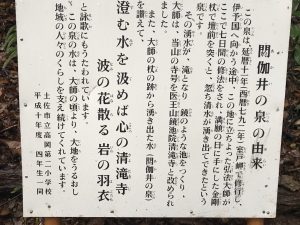 閼伽井の泉の由来
この泉は延暦十年(西暦七九一年)室戸岬で修行し、
伊予国へ向かう途中、この地に立ちよった弘法大師が
ここで七日間の修法をされ、満願の日に手にした金剛
杖で壇前を突くと、忽ち清水が湧き出てできたという
泉です。
その湧水が、滝となり、鏡のような池をつくり、
大師は、当山の寺号を医王山鏡池院清滝寺と改められ
ました。
また、大師の杖の跡から湧き出た水(閼伽井の泉)
を讃えて、
澄む水を汲めば心の清滝寺
波の花散る岩の羽衣
と詠歌にもうたわれています。
この泉の水は、大師の頃より、大地をうるおし
地域の人々のくらしを支え続けてくれています。
土佐市立高岡第二小学校
平成十年度 四年生一同